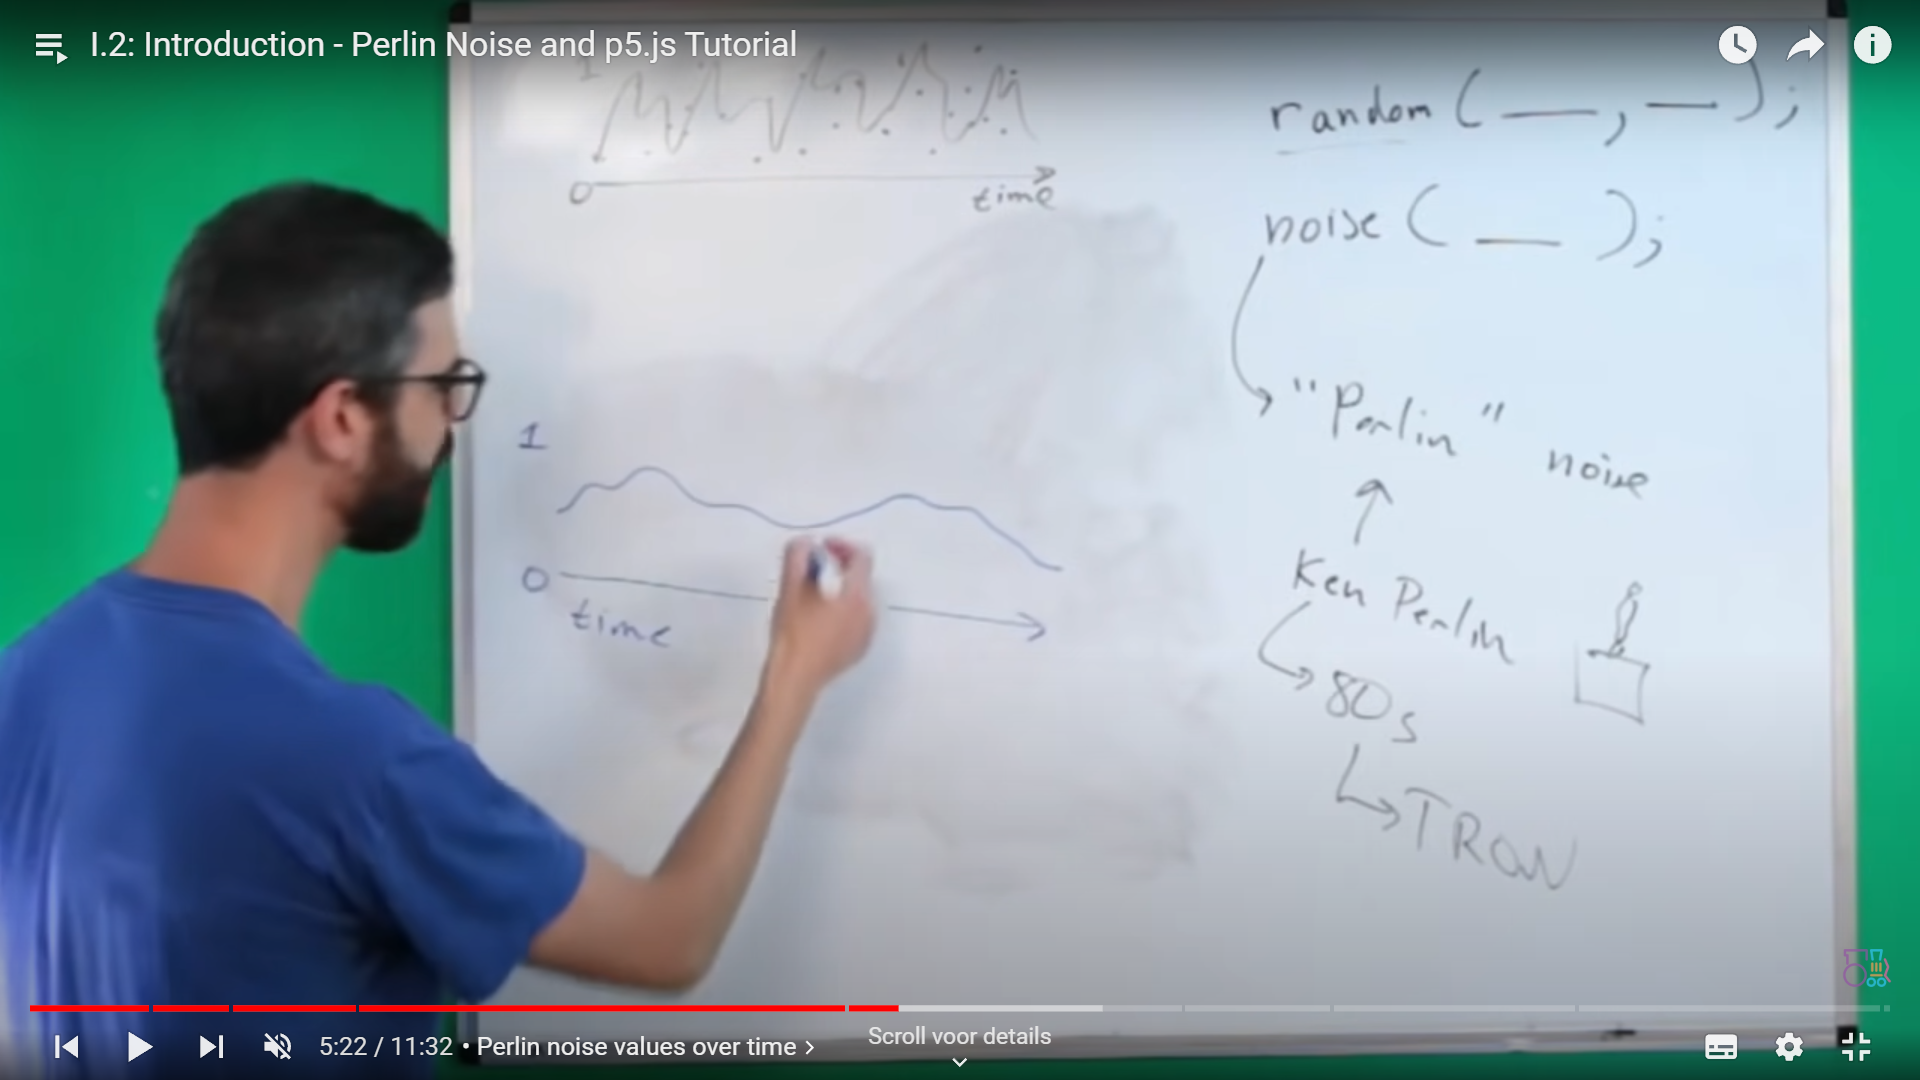 I.2: Introduction - Perlin Noise and p5.js Tutorial
1
0
time
random ( __ , __ );
noise ( __ );
"Perlin" noise
Ken Perlin
80s
TRON
1
0
time
5:22 / 11:32 • Perlin noise values over time
Scroll voor details